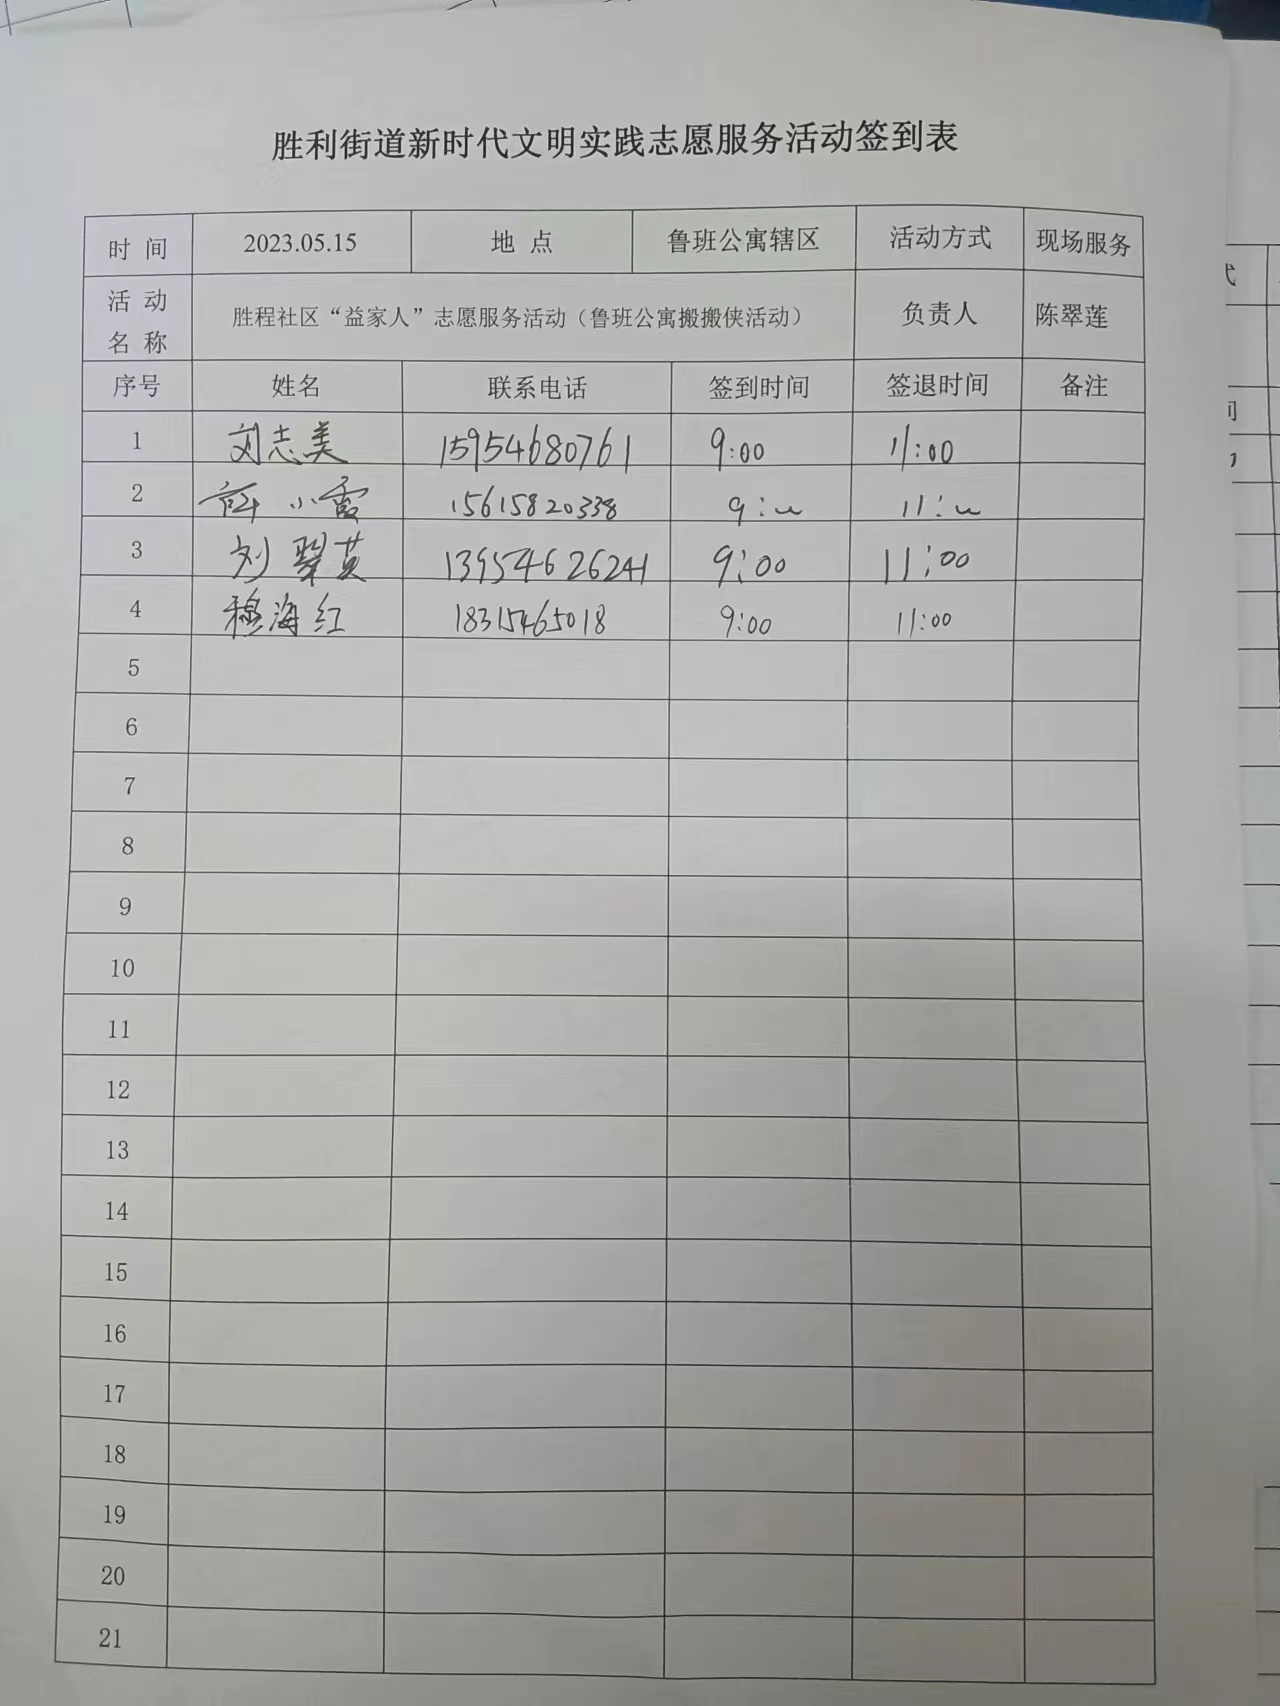 胜利街道新时代文明实践志愿服务活动签到表
时 间 2023.05.15 地 点 鲁班公寓辖区 活动方式 现场服务
活 动 名 称 胜程社区“益家人”志愿服务活动（鲁班公寓搬搬侠活动） 负责人 陈翠莲
序号 姓名 联系电话 签到时间 签退时间 备注
1 刘志美 15954680761 9:00 11:00
2 小霞 15615820338 9: 11:
3 刘翠英 13954626241 9:00 11:00
4 穆海红 18315465018 9:00 11:00
5
6
7
8
9
10
11
12
13
14
15
16
17
18
19
20
21